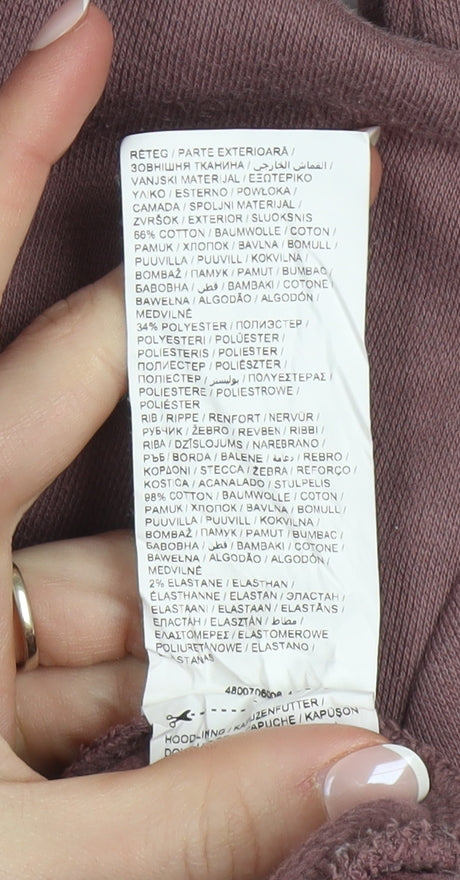 RÉTEG / PARTE EXTERIOARĂ /
ЗОВНІШНЯ ТКАНИНА / القماش الخارجي /
VANJSKI MATERIJAL / ΕΞΩΤΕΡΙΚΟ
ΥΛΙΚΟ / ESTERNO / POWŁOKA /
CAMADA / SPOLJNI MATERIJAL /
ZVRŠOK / EXTERIOR / SLUOKSNIS
66% COTTON / BAUMWOLLE / COTON /
PAMUK / ХЛОПОК / BAVLNA / BOMULL /
PUUVILLA / PUUVILL / KOKVILNA /
BOMBAŽ / ПАМУК / PAMUT / BUMBAC /
БАВОВНА / قطن / ΒΑΜΒΑΚΙ / COTONE /
BAWEŁNA / ALGODÃO / ALGODÓN /
MEDVILNĖ
34% POLYESTER / ПОЛИЭСТЕР /
POLYESTERI / POLÜESTER /
POLIESTERIS / POLIESTER /
ПОЛИЕСТЕР / POLIÉSZTER /
ПОЛІЕСТЕР / بوليستر / ΠΟΛΥΕΣΤΕΡΑΣ /
POLIESTERE / POLIESTROWE /
POLIÉSTER
RIB / RIPPE / RENFORT / NERVÜR /
РУБЧИК / ŽEBRO / REVBEN / RIBBI /
RIBA / DZĪSLOJUMS / NAREBRANO /
РЪБ / BORDA / BALENE / دعامة / REBRO /
ΚΟΡΔΟΝΙ / STECCA / ŻEBRA / REFORÇO /
KOSTICA / ACANALADO / STULPELIS
98% COTTON / BAUMWOLLE / COTON /
PAMUK / ХЛОПОК / BAVLNA / BOMULL /
PUUVILLA / PUUVILL / KOKVILNA /
BOMBAŽ / ПАМУК / PAMUT / BUMBAC /
БАВОВНА / قطن / ΒΑΜΒΑΚΙ / COTONE /
BAWEŁNA / ALGODÃO / ALGODÓN /
MEDVILNĖ
2% ELASTANE / ELASTHAN /
ÉLASTHANNE / ELASTAN / ЭЛАСТАН /
ELASTAANI / ELASTAAN / ELASTĀNS /
ЕЛАСТАН / ELASZTÁN / مطاط /
ΕΛΑΣΤΟΜΕΡΕΣ / ELASTOMEROWE
POLIURETANOWE / ELASTANO /
HOODLINING / KAPUZENFUTTER /
KAPÜŞON